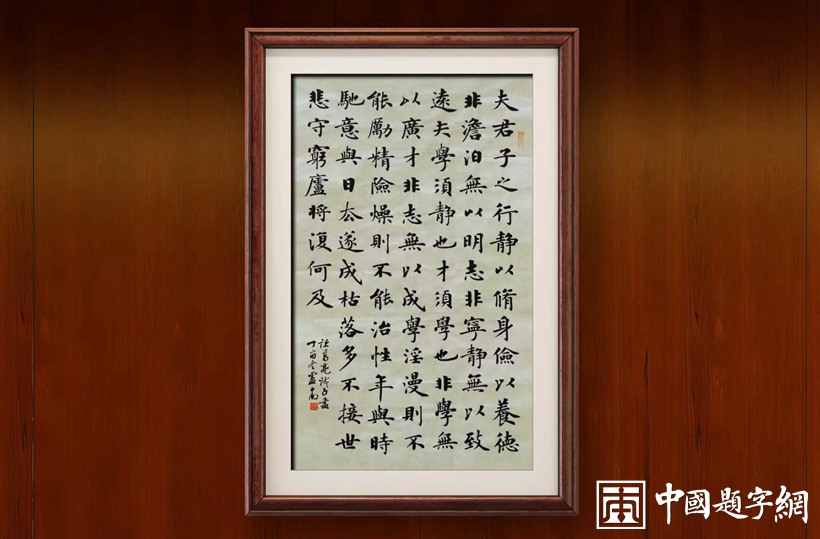 夫君子之行静以脩身儉以養德
非澹泊無以明志非寧静無以致
遠夫學須静也才須學也非學無
以廣才非志無以成學淫漫則不
能勵精險燥則不能治性年與時
馳意與日去遂成枯落多不接世
悲守窮廬将復何及
諸葛亮誡子書
丁酉冬
中國題字網